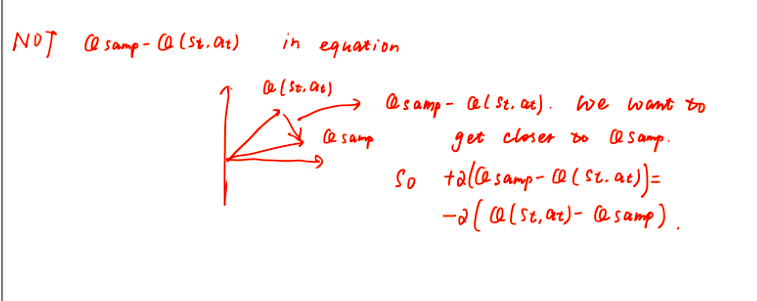 NOT Qsamp - Q(St.at) in equation
Q(St.at)
Qsamp - Q(St.at). We want to
Qsamp
get closer to Qsamp.
So +α(Qsamp - Q(St.at))=
-α(Q(St,at) - Qsamp).